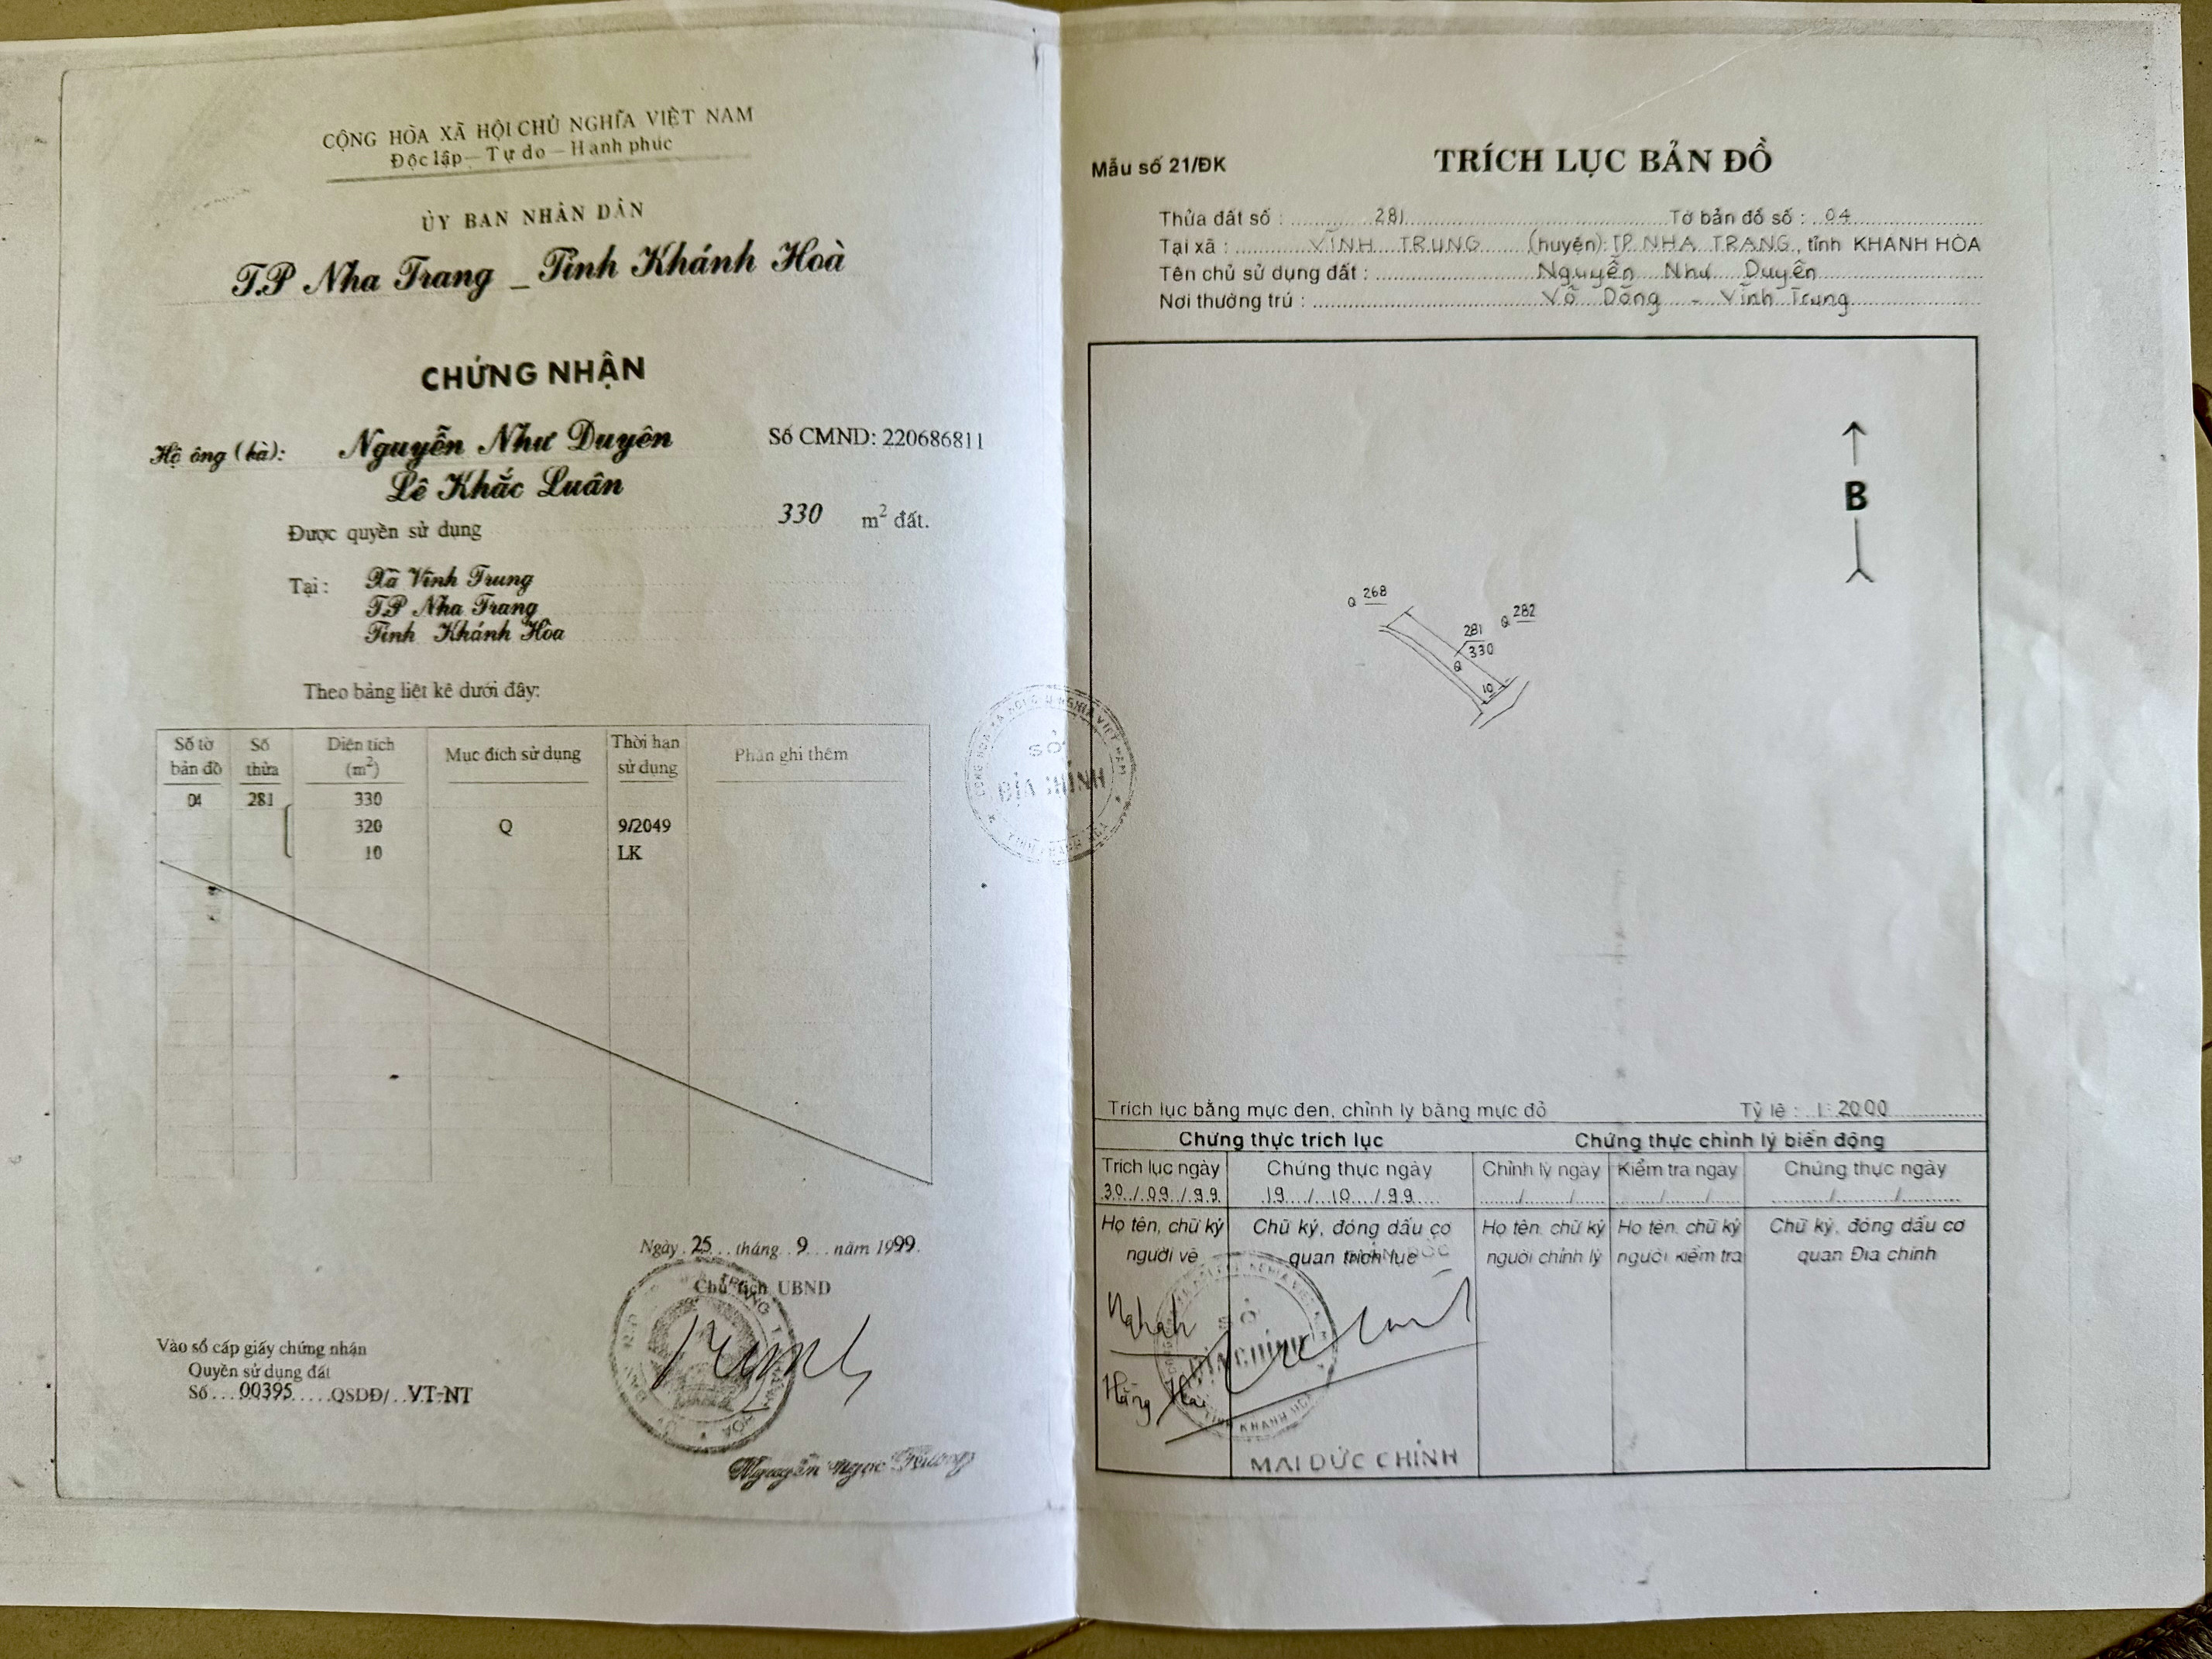 CỘNG HÒA XÃ HỘI CHỦ NGHĨA VIỆT NAM
Độc lập - Tự do - Hạnh phúc
ỦY BAN NHÂN DÂN
T.P Nha Trang _ Tỉnh Khánh Hoà
CHỨNG NHẬN
Hộ ông (bà): Nguyễn Như Duyên Số CMND: 220686811
Lê Khắc Luân
Được quyền sử dụng 330 m² đất.
Tại : Xã Vĩnh Trung
T.P Nha Trang
Tỉnh Khánh Hòa
Theo bảng liệt kê dưới đây:
Số tờ bản đồ Số thửa Diện tích (m²) Mục đích sử dụng Thời hạn sử dụng Phần ghi thêm
04 281 330
320 Q 9/2049
10 LK
Ngày 25 tháng 9 năm 1999.
Chủ tịch UBND
Vào sổ cấp giấy chứng nhận
Quyền sử dụng đất
Số 00395 QSDĐ/ VT-NT
SỞ
ĐỊA CHÍNH
Mẫu số 21/ĐK
TRÍCH LỤC BẢN ĐỒ
Thửa đất số : 281 Tờ bản đồ số : 04
Tại xã : VĨNH TRUNG (huyện): TP NHA TRANG, tỉnh KHÁNH HÒA
Tên chủ sử dụng đất : Nguyễn Như Duyên
Nơi thường trú : Võ Dõng - Vĩnh Trung
B
Q 268
Q 282
281
330
Q
10
Trích lục bằng mực đen, chỉnh lý bằng mực đỏ Tỷ lệ : 1:2000
Chứng thực trích lục Chứng thực chỉnh lý biến động
Trích lục ngày Chứng thực ngày Chỉnh lý ngày Kiểm tra ngày Chứng thực ngày
30/09/99 19/10/99
Họ tên, chữ ký người vẽ Chữ ký, đóng dấu cơ quan trích lục Họ tên, chữ ký người chỉnh lý Họ tên, chữ ký người kiểm tra Chữ ký, đóng dấu cơ quan Địa chính
SỞ
ĐỊA CHÍNH
MAI DỨC CHỈNH